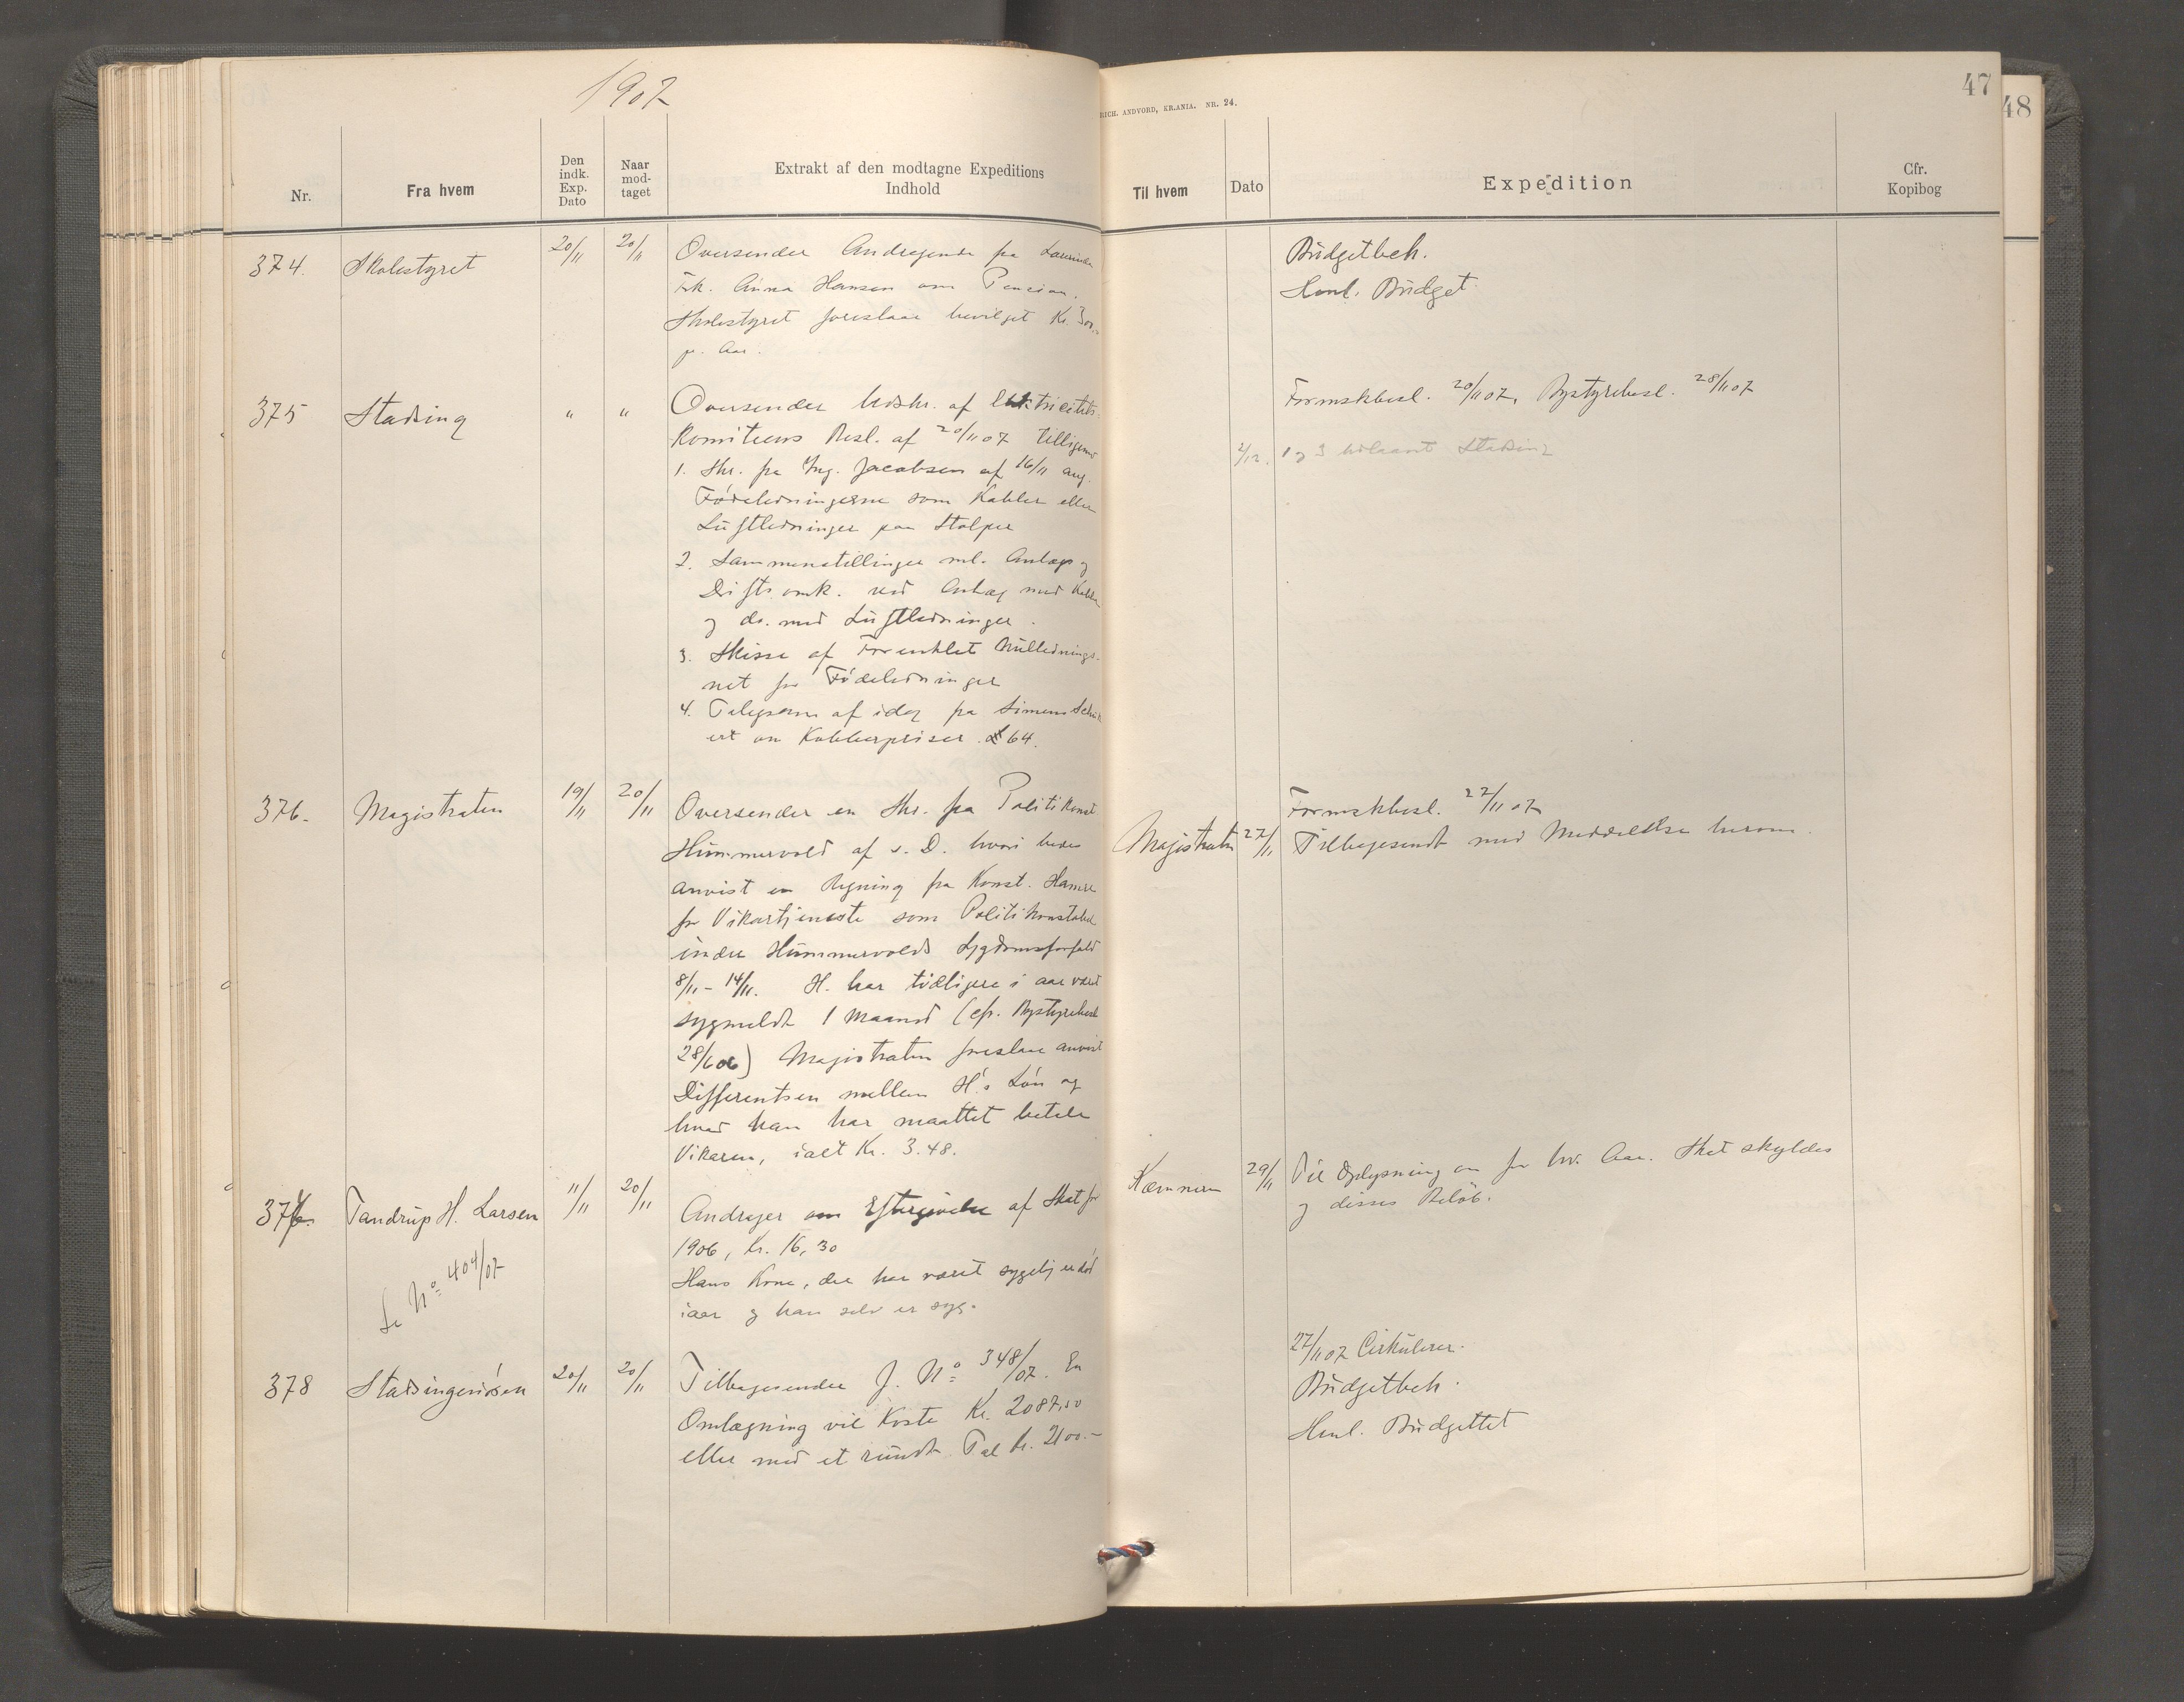 1907
Nr.
Fra hvem
Den indk. Exp. Dato
Naar mod-taget
Extrakt af den modtagne Expeditions Indhold
374.
Skolestyret
20/11
20/11
Oversender Andragende fra Lærerinde
Frk. Anna Hansen om Pension.
Skolestyret foreslaar bevilget Kr. 300.-
pr. Aar.
375
Stadsing
"
"
Oversender Udskr. af Elektricitets-
komiteens Besl. af 20/11 07 tilligemed
1. Skr. fra Ing. Jacobsen af 16/11 ang.
Fødeledningerne som Kabler eller
Luftledninger paa Stolper
2. Sammenstillinger ml. Anlægs og
Drifts omk. ved Anlæg med Kabler
og do. med Luftledninger.
3. Skisse af Forenklet Nullednings-
net for Fødeledninger
4. Telegram af idag fra Simens Schuk
ert om Kobberpriser £ 64.
376.
Magistraten
19/11
20/11
Oversender en Skr. fra Politikonst
Hummervold af s. D. hvori bedes
anvist en Regning fra Konst. Hamre
for Vikartjeneste som Politikonstabel
under Hummervolds Sygdomsforfald
8/11 - 14/11. H. har tidligere i aar været
sygmeldt 1 Maaned (cfr. Bystyrebesl
28/6 06) Magistraten foreslaar anvist
Differentsen mellem H's Løn og
hvad han har maattet betale
Vikaren, ialt Kr. 3.48.
377
Tandrup H. Larsen
11/11
20/11
Andrager om Eftergivelse af Skat for
1906, Kr. 16,30
Hans Kone, der har været sygelig er død
iaar og han selv er syg.
Se No 404/07
378
Stadsingeniøren
20/11
20/11
Tilbagesender J. No 348/07. En
Omlægning vil koste Kr. 2087,50
eller med et rundt Tal kr. 2100.-
RICH. ANDVORD, KR.ANIA. NR. 24.
47
48
Til hvem
Dato
Expedition
Cfr. Kopibog
Budgetbeh.
Henl. Budget
Formskbesl. 20/11 07, Bystyrebesl. 28/11 07
2/12. 1 og 3 utlaant Stadsing
Formskbesl. 27/11 07
Magistraten 27/11 Tilbagesendt med Meddelelse herom.
Kæmneren 29/11 Til Oplysning om for hv. Aar. Skat skyldes
og disses Beløb.
27/11 07 Cirkulerer.
Budgetbeh.
Henl. Budgettet